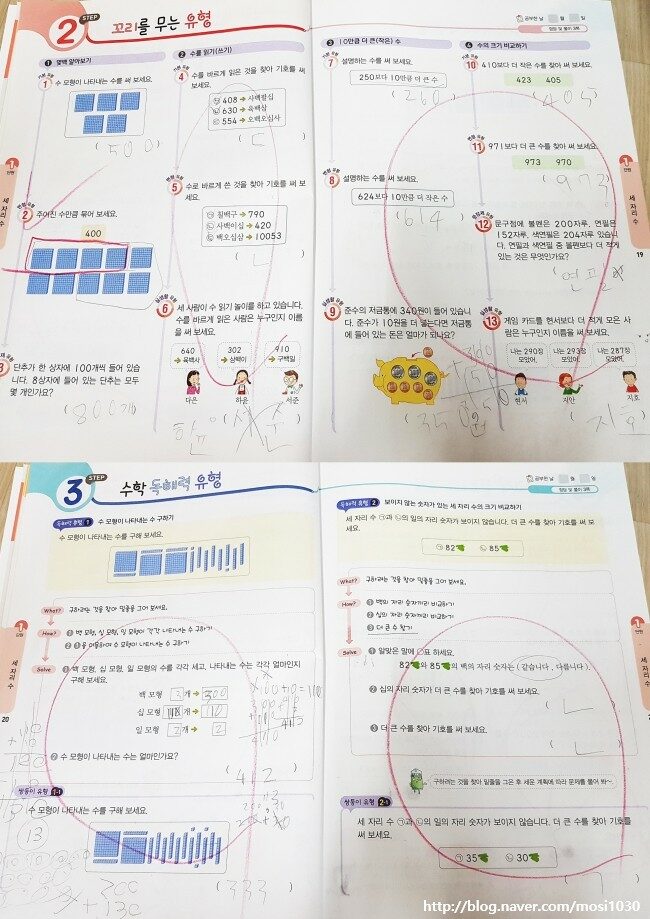 2 STEP 꼬리를 무는 유형
1 몇백 알아보기
1 수 모형이 나타내는 수를 써 보세요.
(500)
2 주어진 수만큼 묶어 보세요.
400
3 단추가 한 상자에 100개씩 들어 있습니다. 8상자에 들어 있는 단추는 모두
몇 개인가요?
(800개)
2 수를 읽기(쓰기)
4 수를 바르게 읽은 것을 찾아 기호를 써
보세요.
㉠ 408 → 사백팔십
㉡ 630 → 육백삼
㉢ 554 → 오백오십사
(ㄷ)
5 수로 바르게 쓴 것을 찾아 기호를 써 보
세요.
㉠ 칠백구 → 790
㉡ 사백이십 → 420
㉢ 백오십삼 → 10053
(ㄴ)
6 세 사람이 수 읽기 놀이를 하고 있습니다.
수를 바르게 읽은 사람은 누구인지 이름
을 써 보세요.
640 육백사
302 삼백이
910 구백일
다은 하윤 서준
3 10만큼 더 큰(작은) 수
7 설명하는 수를 써 보세요.
250보다 10만큼 더 큰 수
(260)
8 설명하는 수를 써 보세요.
624보다 10만큼 더 작은 수
(614)
9 준수의 저금통에 340원이 들어 있습니
다. 준수가 10원을 더 넣는다면 저금통
에 들어 있는 돈은 얼마가 되나요?
(350원)
4 수의 크기 비교하기
공부한 날 월 일
정답 및 풀이 3쪽
10 410보다 더 작은 수를 찾아 써 보세요.
423 405
(405)
11 971보다 더 큰 수를 찾아 써 보세요.
973 970
(973)
12 문구점에 볼펜은 200자루, 연필은
152자루, 색연필은 204자루 있습니
다. 연필과 색연필 중 볼펜보다 더 적게
있는 것은 무엇인가요?
(연필)
13 게임 카드를 현서보다 더 적게 모은 사
람은 누구인지 이름을 써 보세요.
나는 290장 모았어.
나는 293장 모았어.
나는 287장 모았어.
현서 지안 지호
(지호)
1 단원
세 자리 수
1 단원
세 자리 수
19
3 STEP 수학 독해력 유형
독해력 유형 1 수 모형이 나타내는 수 구하기
수 모형이 나타내는 수를 구해 보세요.
What? 구하려는 것을 찾아 밑줄을 그어 보세요.
How? 1 백 모형, 십 모형, 일 모형이 각각 나타내는 수 구하기
2 1을 이용하여 수 모형이 나타내는 수 구하기
Solve 1 백 모형, 십 모형, 일 모형의 수를 각각 세고, 나타내는 수는 각각 얼마인지
구해 보세요.
백 모형 개 → 300
십 모형 개 → 110
일 모형 2개 → 2
2 수 모형이 나타내는 수는 얼마인가요?
(412)
쌍둥이 유형 1-1
수 모형이 나타내는 수를 구해 보세요.
(333)
13
1 단원
세 자리 수
20
공부한 날 월 일
정답 및 풀이 3쪽
독해력 유형 2 보이지 않는 숫자가 있는 세 자리 수의 크기 비교하기
세 자리 수 ㉠과 ㉡의 일의 자리 숫자가 보이지 않습니다. 더 큰 수를 찾아 기호를 써 보
세요.
㉠ 82 ㉡ 85
What? 구하려는 것을 찾아 밑줄을 그어 보세요.
How? 1 백의 자리 숫자끼리 비교하기
2 십의 자리 숫자끼리 비교하기
3 더 큰 수 찾기
Solve 1 알맞은 말에 ○표 하세요.
82 와 85 의 백의 자리 숫자는 ( 같습니다 , 다릅니다 ).
2 십의 자리 숫자가 더 큰 수를 찾아 기호를 써 보세요.
(ㄴ)
3 더 큰 수를 찾아 기호를 써 보세요.
(ㄴ)
구하려는 것을 찾아 밑줄을 그은 후 세운 계획에 따라 문제를 풀어 봐~
쌍둥이 유형 2-1
세 자리 수 ㉠과 ㉡의 일의 자리 숫자가 보이지 않습니다. 더 큰 수를 찾아 기호를
써 보세요.
㉠ 35 ㉡ 30
(ㄱ)
1 단원
세 자리 수
http://blog.naver.com/mosi1030